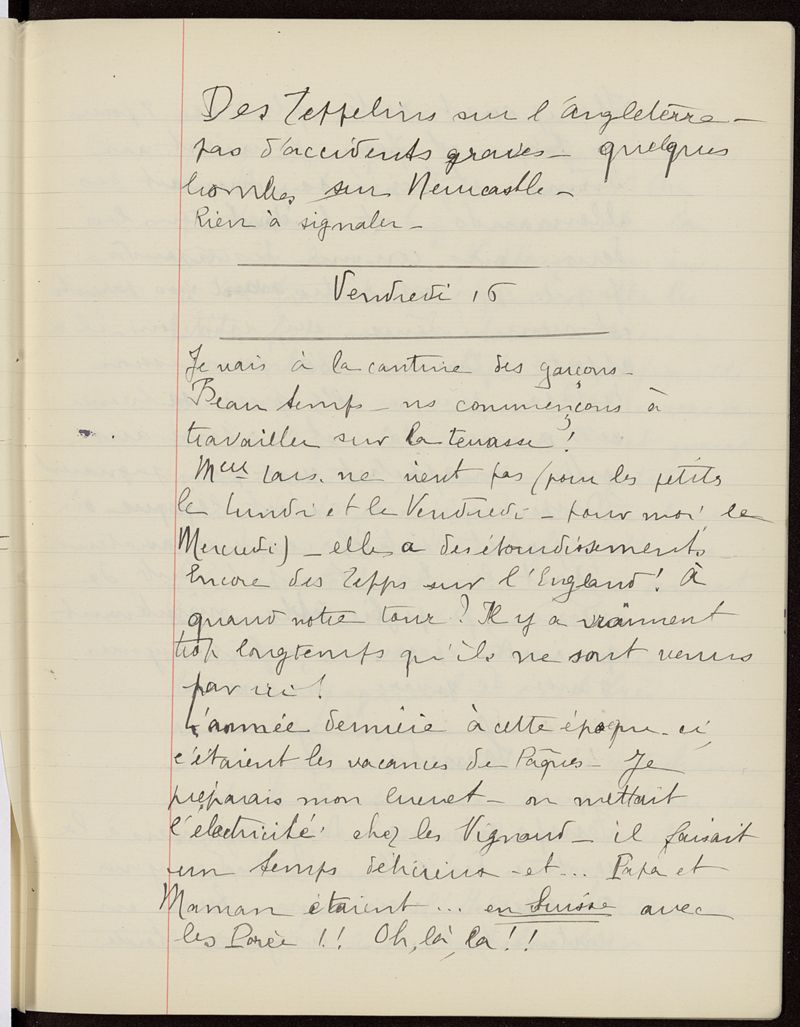 Des Zeppelins sur l'Angleterre –
pas d'accidents graves – quelques
bombes sur Newcastle –
Rien à signaler –
Vendredi 16
Je vais à la cantine des garçons –
Beau temps – ns commençons à
travailler sur la terrasse !
Melle ne vient pas (pour les petits
le Lundi et le Vendredi – pour moi le
Mercredi) – elle a des étourdissements
Encore des Zepps sur l'England ! À
quand notre tour ? Il y a vraiment
trop longtemps qu'ils ne sont venus
par ici !
L'année dernière à cette époque-ci,
c'étaient les vacances de Pâques – Je
préparais mon brevet – on mettait
l'électricité chez les Vignaud – il faisait
un temps délicieux – et... Papa et
Maman étaient... en Suisse avec
les Porée !! Oh, là, là !!